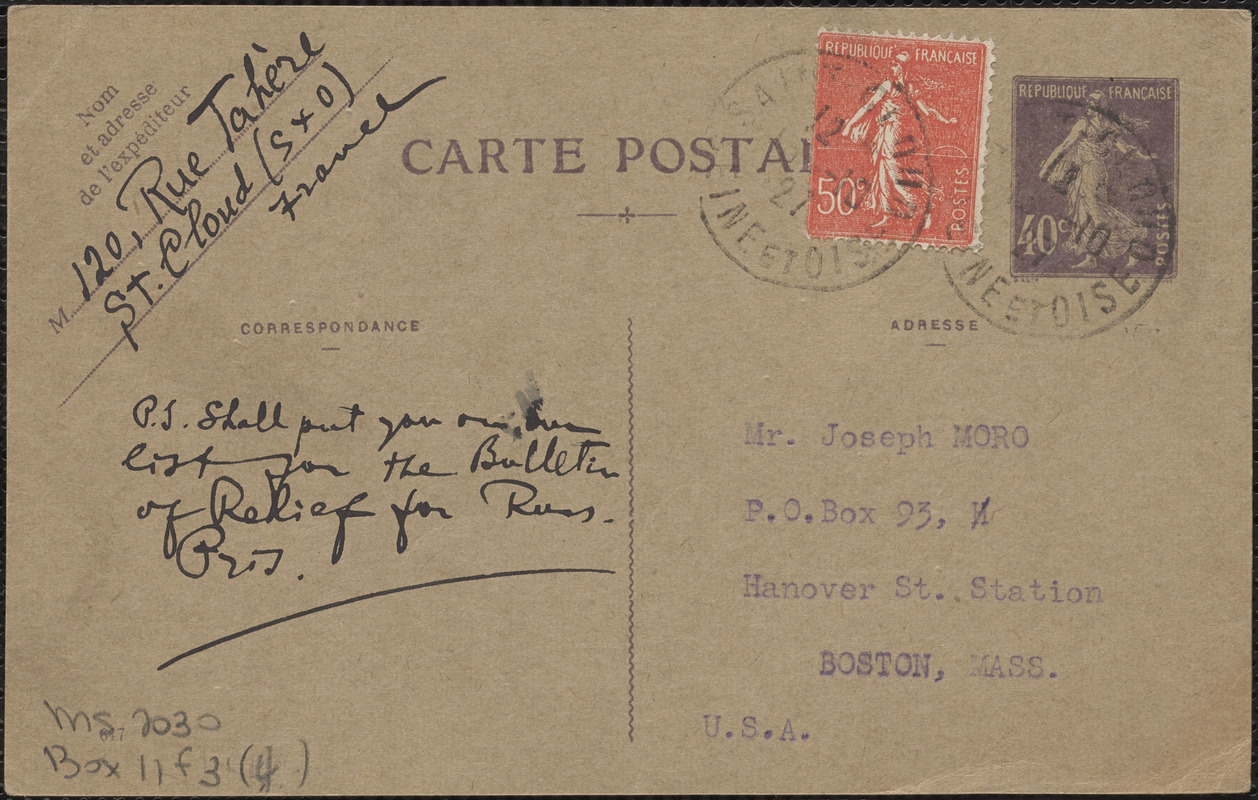 Nom
et adresse
de l'expéditeur
M. 120, Rue Tahère
St. Cloud (S & O)
France
CARTE POSTAL
REPUBLIQUE FRANÇAISE
50c
POSTES
REPUBLIQUE FRANÇAISE
40c
POSTES
SAINT
12
21
INE ET OISE
NE ET OISE
CORRESPONDANCE
ADRESSE
P.S. Shall put you on our
list for the Bulletin
of Relief for Russ.
Pris.
Mr. Joseph MORO
P.O.Box 93,
Hanover St. Station
BOSTON, MASS.
U.S.A.
MS. 2030
Box 11 f 3 (4)